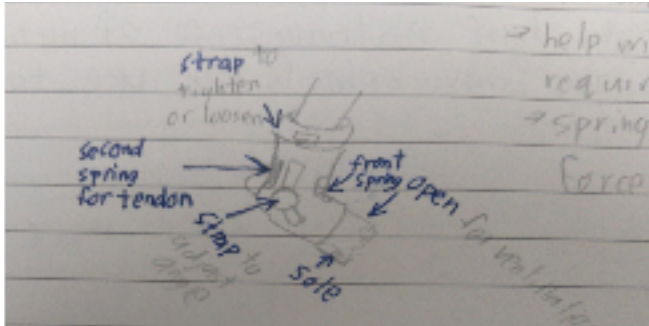 strap to
tighten
or loosen
second
spring
for tendon
front
spring
open for
strap to
adjust
sole
→ help
→ spring
force